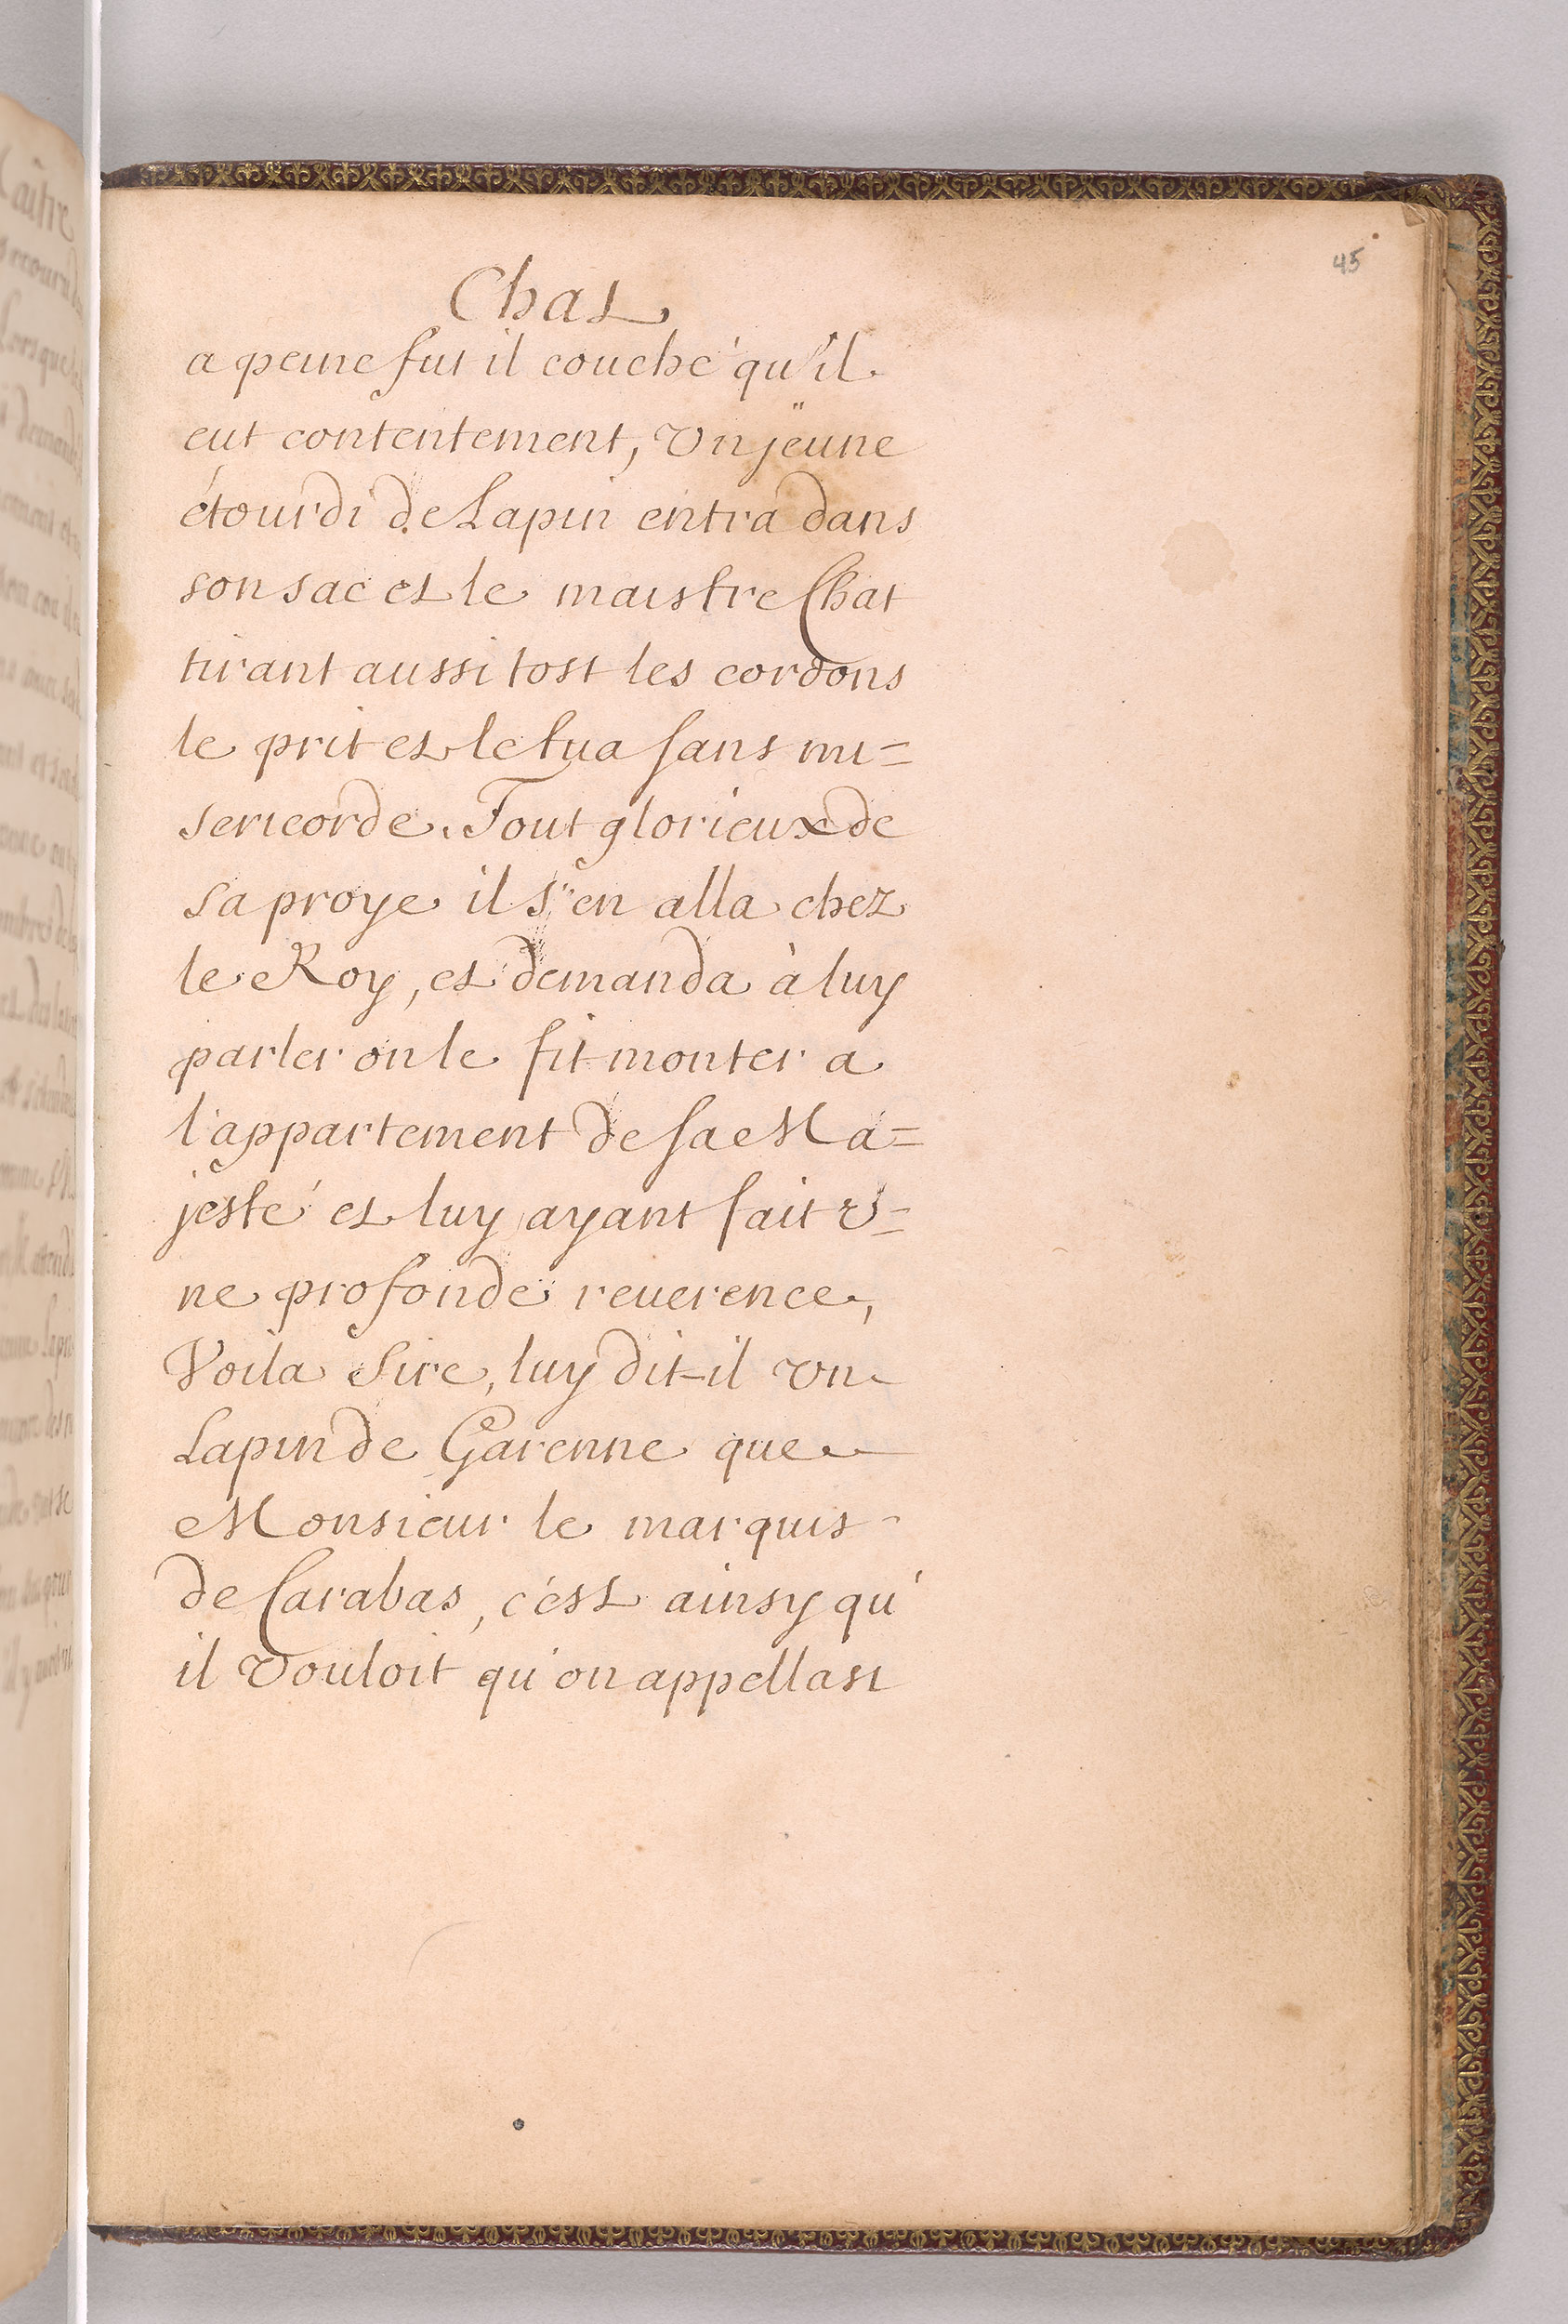 45
Chat
a peine fut il couché qu'il
eut contentement, Un jeune
étourdi de Lapin entra dans
son sac et le maistre Chat
tirant aussi tost les cordons
le prit et le tua sans mi=
sericorde. Tout glorieux de
sa proye il s'en alla chez
le Roy, et demanda à luy
parler on le fit monter a
l'appartement de sa Ma=
jesté et luy ayant fait v=
ne profonde reuerence,
Voila Sire, luy dit-il vn
Lapin de Garenne que
Monsieur le marquis
de Carabas, c'est ainsy qu'
il vouloit qu'on appellast